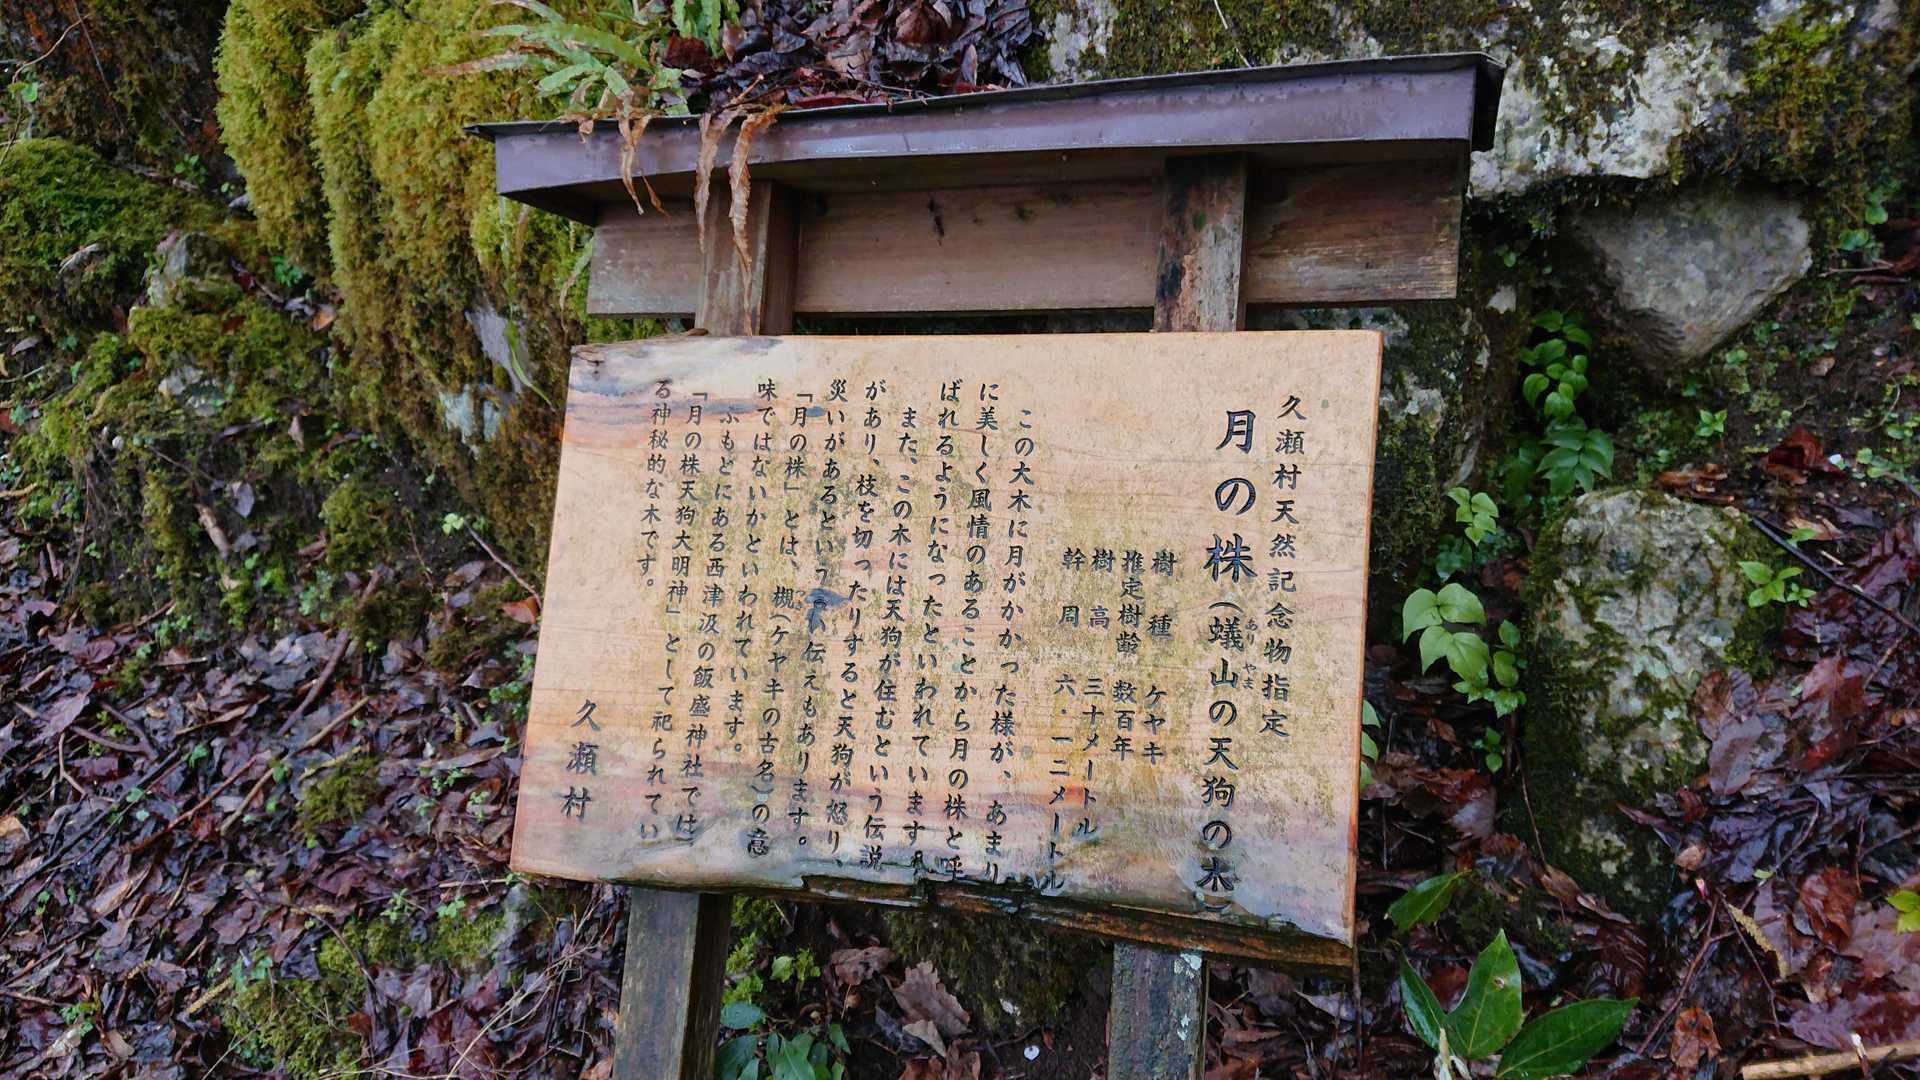 久瀬村天然記念物指定
月の株(蟻山の天狗の木)
ありやま
樹種 ケヤキ
推定樹齢 数百年
樹高 三十メートル
幹周 六・一二メートル
この大木に月がかかった様が、あまり
に美しく風情のあることから月の株と呼
ばれるようになったといわれています。
また、この木には天狗が住むという伝説
があり、枝を切ったりすると天狗が怒り、
災いがあるという言い伝えもあります。
「月の株」とは、槻(ケヤキの古名)の意
つき
味ではないかといわれています。
ふもとにある西津汲の飯盛神社では
「月の株天狗大明神」として祀られてい
る神秘的な木です。
久瀬村